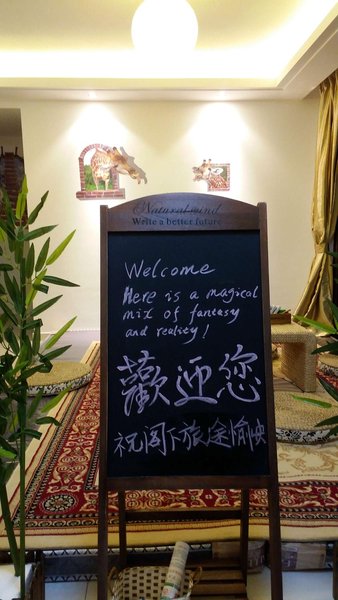 Natural mind
Write a better future
Welcome
Here is a magical
mix of fantasy
and reality!
歡迎您
祝阁下旅途愉快